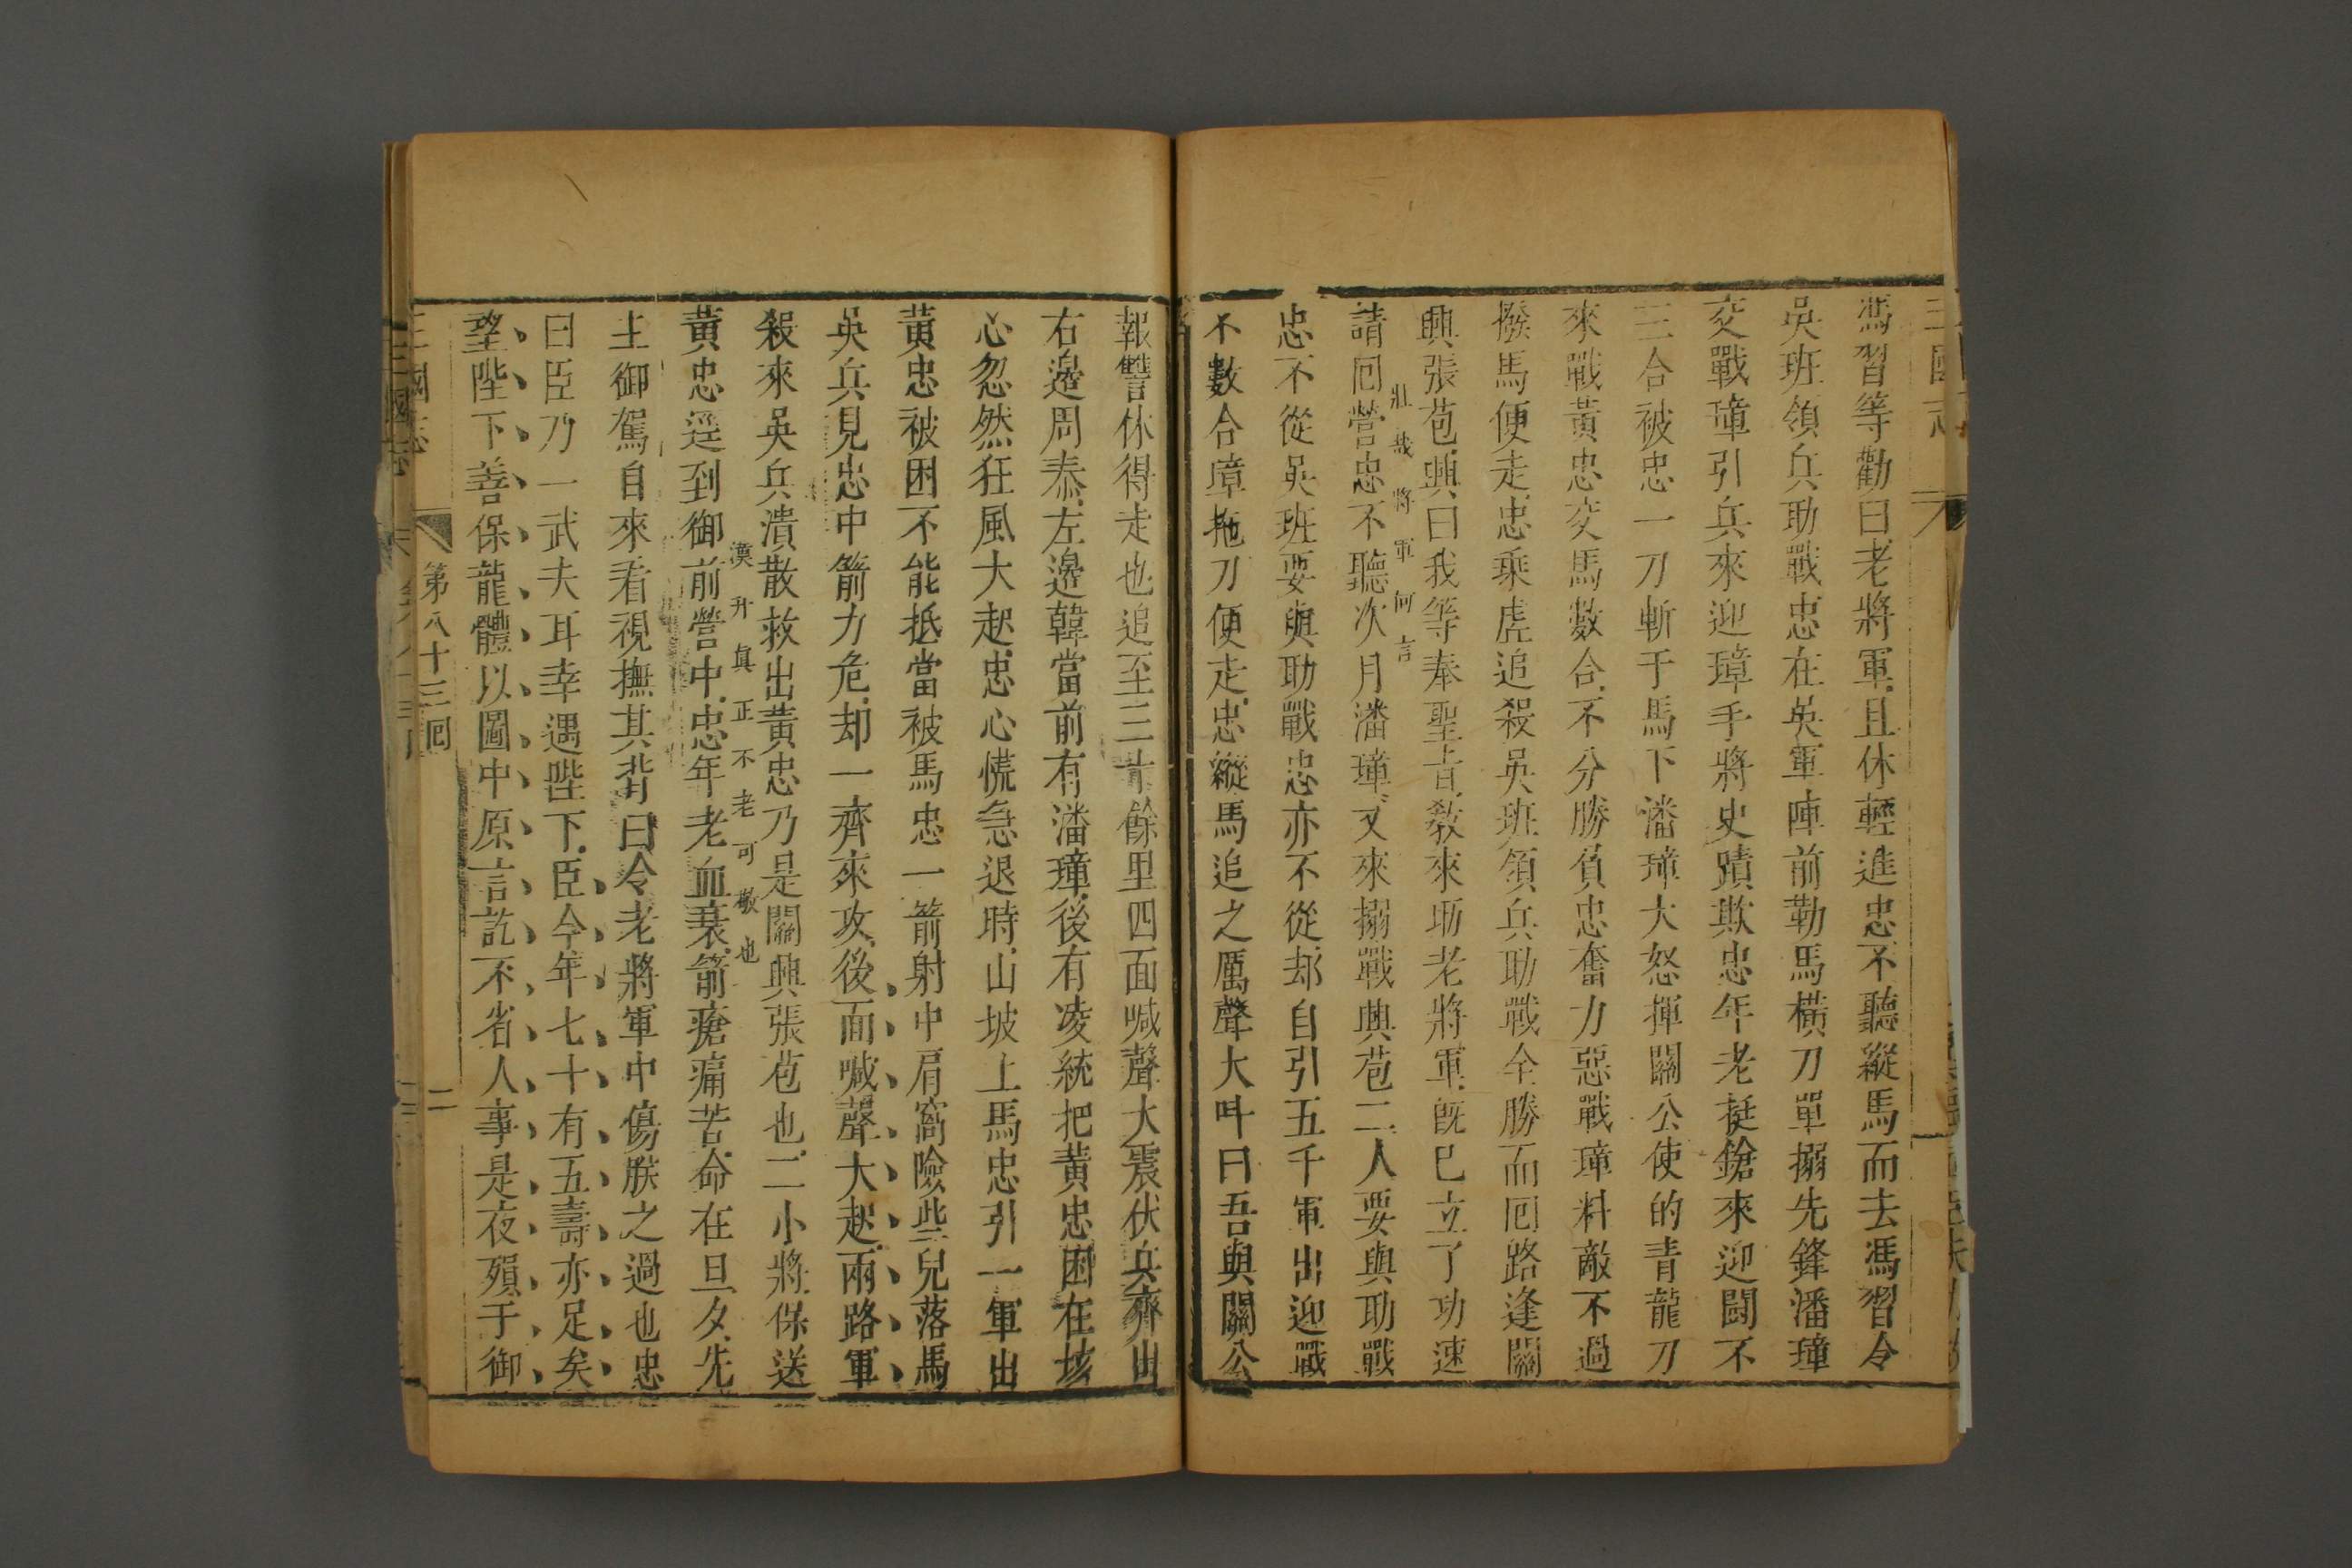 三國志
馮習等勸曰老將軍且休輕進忠不聽縱馬而去馮習令
吳班領兵助戰忠在吳軍陣前勒馬橫刀單搦先鋒潘璋
交戰璋引兵來迎璋手將史蹟欺忠年老挺鎗來迎鬬不
三合被忠一刀斬于馬下潘璋大怒揮關公使的青龍刀
來戰黃忠交馬數合不分勝負忠奮力惡戰璋料敵不過
撥馬便走忠乘虎追殺吳班領兵助戰全勝而回路逢關
興張苞興曰我等奉聖旨教來助老將軍旣已立了功速
壯哉將軍何言
請回營忠不聽次月潘璋又來搦戰興苞二人要與助戰
忠不從吳班要與助戰忠亦不從却自引五千軍出迎戰
不數合璋拖刀便走忠縱馬追之厲聲大叫曰吾與關公
報讐休得走也追至三十餘里四面喊聲大震伏兵齊出
右邊周泰左邊韓當前有潘璋後有凌統把黃忠困在垓
心忽然狂風大起忠心慌急退時山坡上馬忠引一軍出
黃忠被困不能抵當被馬忠一箭射中肩窩險些兒落馬
吳兵見忠中箭力危却一齊來攻後面喊聲大起兩路軍
殺來吳兵潰散救出黃忠乃是關興張苞也二小將保送
漢升真正不老可敬也
黃忠逕到御前營中忠年老血衰箭瘡痛苦命在旦夕先
主御駕自來看視撫其背曰令老將軍中傷朕之過也忠
曰臣乃一武夫耳幸遇陛下臣今年七十有五壽亦足矣
望陛下善保龍體以圖中原言訖不省人事是夜殞于御
三國志 第八十三回 二